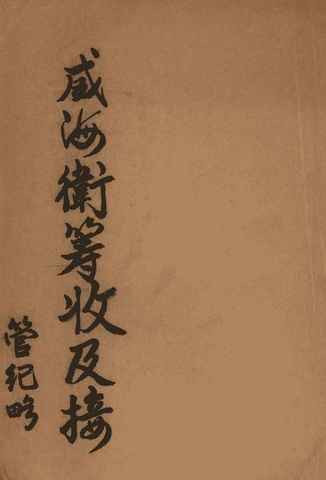 威海衛籌收及接
管紀略